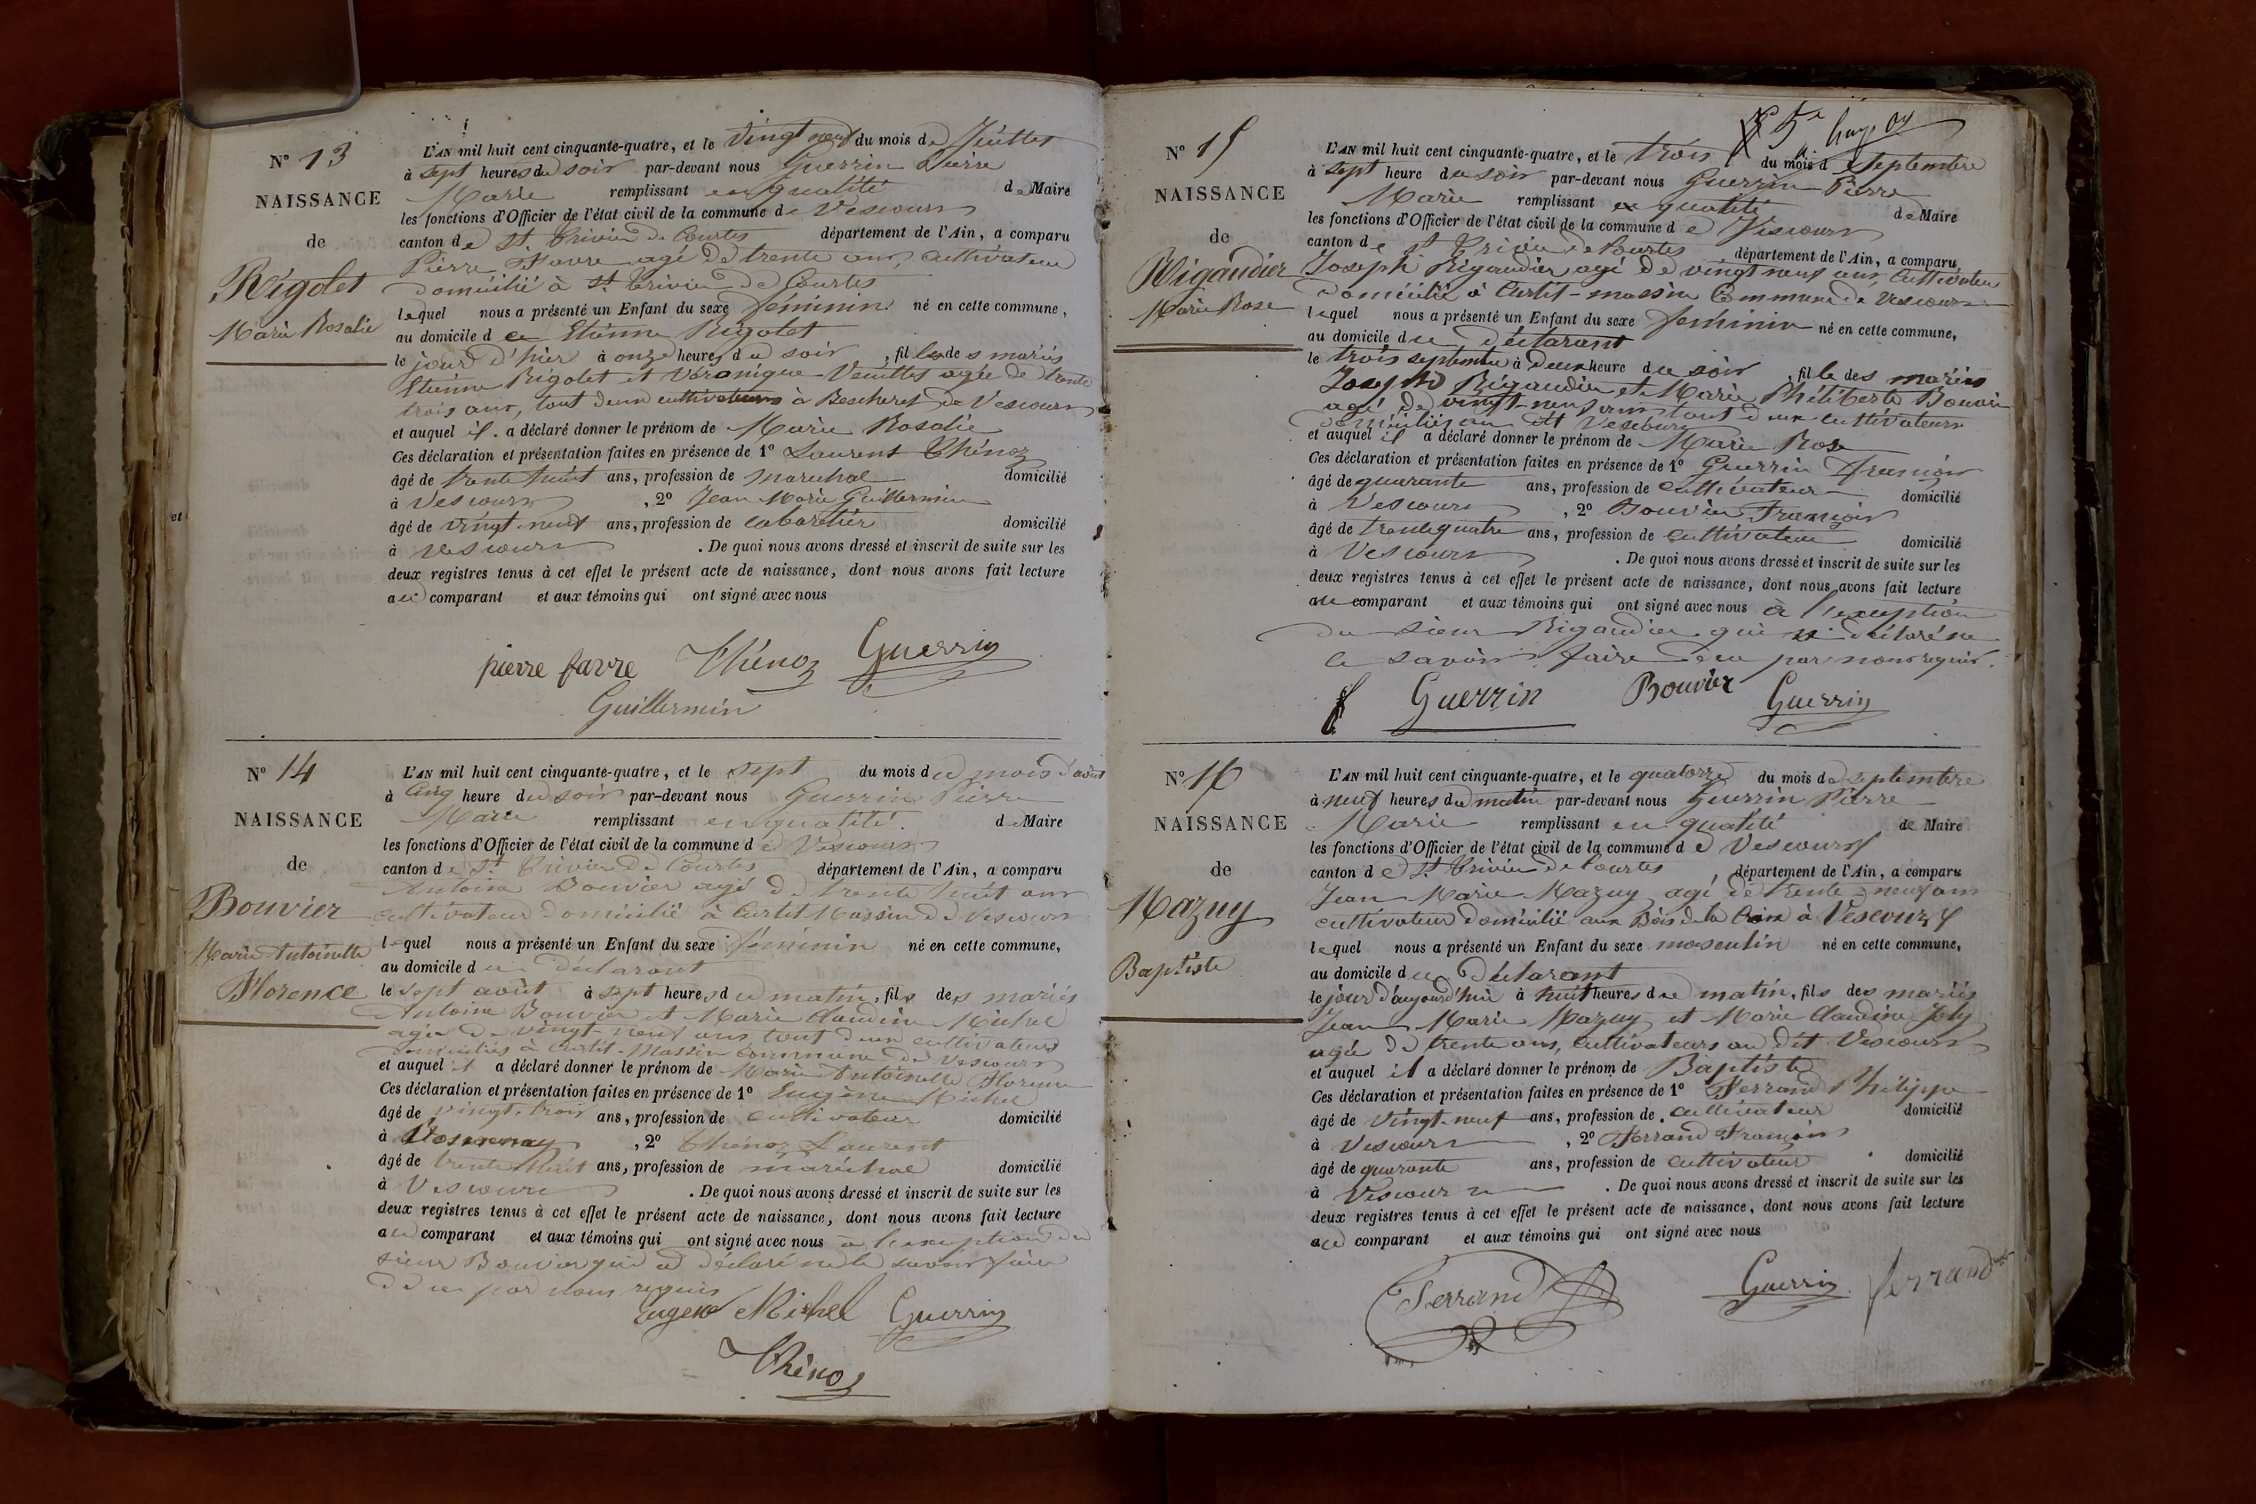 N° 13
NAISSANCE
de
Rigolet
Marie Rosalie
L'AN mil huit cent cinquante-quatre, et le Vingt neuf du mois de Juillet
à sept heures du soir par-devant nous Guerrin Pierre
Marie remplissant en qualité de Maire
les fonctions d'Officier de l'état civil de la commune de Vescours
canton de St. Trivier de Courtes département de l'Ain, a comparu
Pierre Favre agé de trente ans, Cultivateur
domicilié à St Trivier de Courtes
lequel nous a présenté un Enfant du sexe féminin né en cette commune,
au domicile de Etienne Rigolet
le jour d'hier à onze heures du soir, fille des mariés
Etienne Rigolet et Véronique Veuillet agée de trente
trois ans, tout deux cultivateurs à Bescheret de Vescours
et auquel il a déclaré donner le prénom de Marie Rosalie
Ces déclaration et présentation faites en présence de 1° Laurent Thénoz
âgé de trente huit ans, profession de marechal domicilié
à Vescours, 2° Jean Marie Guillermin
âgé de vingt-neuf ans, profession de cabaretier domicilié
à Vescours. De quoi nous avons dressé et inscrit de suite sur les
deux registres tenus à cet effet le présent acte de naissance, dont nous avons fait lecture
au comparant et aux témoins qui ont signé avec nous
pierre favre Thénoz Guerrin
Guillermin
N° 14
NAISSANCE
de
Bouvier
Marie Antoinette
Florence
L'AN mil huit cent cinquante-quatre, et le sept du mois du mois d'aout
à cinq heure du soir par-devant nous Guerrin Pierre
Marie remplissant en qualité de Maire
les fonctions d'Officier de l'état civil de la commune de Vescours
canton de St Trivier de Courtes département de l'Ain, a comparu
Antoine Bouvier agé de trente huit ans
cultivateur domicilié à Curtit Massin de Vescours
lequel nous a présenté un Enfant du sexe féminin né en cette commune,
au domicile du déclarant
le sept août à sept heures du matin, fils des mariés
Antoine Bouvier et Marie Claudine Michel
agée de vingt-neuf ans tout deux cultivateurs
domiciliés à Curtit-Massin commune de Vescours
et auquel il a déclaré donner le prénom de Marie Antoinette Florence
Ces déclaration et présentation faites en présence de 1° Eugène Michel
âgé de vingt-trois ans, profession de cultivateur domicilié
à, 2° Thénoz Laurent
âgé de trente huit ans, profession de maréchal domicilié
à Vescours. De quoi nous avons dressé et inscrit de suite sur les
deux registres tenus à cet effet le présent acte de naissance, dont nous avons fait lecture
au comparant et aux témoins qui ont signé avec nous à l'exception du
sieur Bouvier qui a déclaré ne le savoir faire
de ce par nous requis
Eugene Michel Guerrin
Thénoz
N° 15
NAISSANCE
de
Rigaudier
Marie Rose
L'AN mil huit cent cinquante-quatre, et le trois du mois de Septembre
à sept heure du soir par-devant nous Guerrin Pierre
Marie remplissant en qualité de Maire
les fonctions d'Officier de l'état civil de la commune de Vescours
canton de St Trivier de Courtes département de l'Ain, a comparu
Joseph Rigaudier agé de vingt neuf ans, Cultivateur
domicilié à Curtit-massin Commune de Vescours
lequel nous a présenté un Enfant du sexe féminin né en cette commune,
au domicile du déclarant
le trois septembre à deux heure du soir, fille des mariés
Joseph Rigaudier et Marie Philiberte Bouvier
agé de vingt-neuf ans tout deux cultivateurs
domiciliés au dit Vescours
et auquel il a déclaré donner le prénom de Marie Rose
Ces déclaration et présentation faites en présence de 1° Guerrin François
âgé de quarante ans, profession de cultivateur domicilié
à Vescours, 2° Bouvier François
âgé de trente quatre ans, profession de cultivateur domicilié
à Vescours. De quoi nous avons dressé et inscrit de suite sur les
deux registres tenus à cet effet le présent acte de naissance, dont nous avons fait lecture
au comparant et aux témoins qui ont signé avec nous à l'exception
du sieur Rigaudier qui a déclaré ne
le savoir faire de ce par nous requis.
Guerrin Bouvier Guerrin
N° 16
NAISSANCE
de
Mazuy
Baptiste
L'AN mil huit cent cinquante-quatre, et le quatorze du mois de septembre
à neuf heures du matin par-devant nous Guerrin Pierre
Marie remplissant en qualité de Maire
les fonctions d'Officier de l'état civil de la commune de Vescours
canton de St Trivier de Courtes département de l'Ain, a comparu
Jean Marie Mazuy agé de trente-neuf ans
cultivateur domicilié aux Bois de la Croix à Vescours
lequel nous a présenté un Enfant du sexe masculin né en cette commune,
au domicile du déclarant
le jour d'aujourd'hui à huit heures du matin, fils des mariés
Jean Marie Mazuy et Marie Claudine Joly
agée de trente ans, cultivateurs au dit Vescours
et auquel il a déclaré donner le prénom de Baptiste
Ces déclaration et présentation faites en présence de 1° Ferrand Philippe
âgé de vingt-neuf ans, profession de cultivateur domicilié
à Vescours, 2° Ferrand François
âgé de quarante ans, profession de cultivateur domicilié
à Vescours. De quoi nous avons dressé et inscrit de suite sur les
deux registres tenus à cet effet le présent acte de naissance, dont nous avons fait lecture
au comparant et aux témoins qui ont signé avec nous
Ferrand Guerrin ferrand